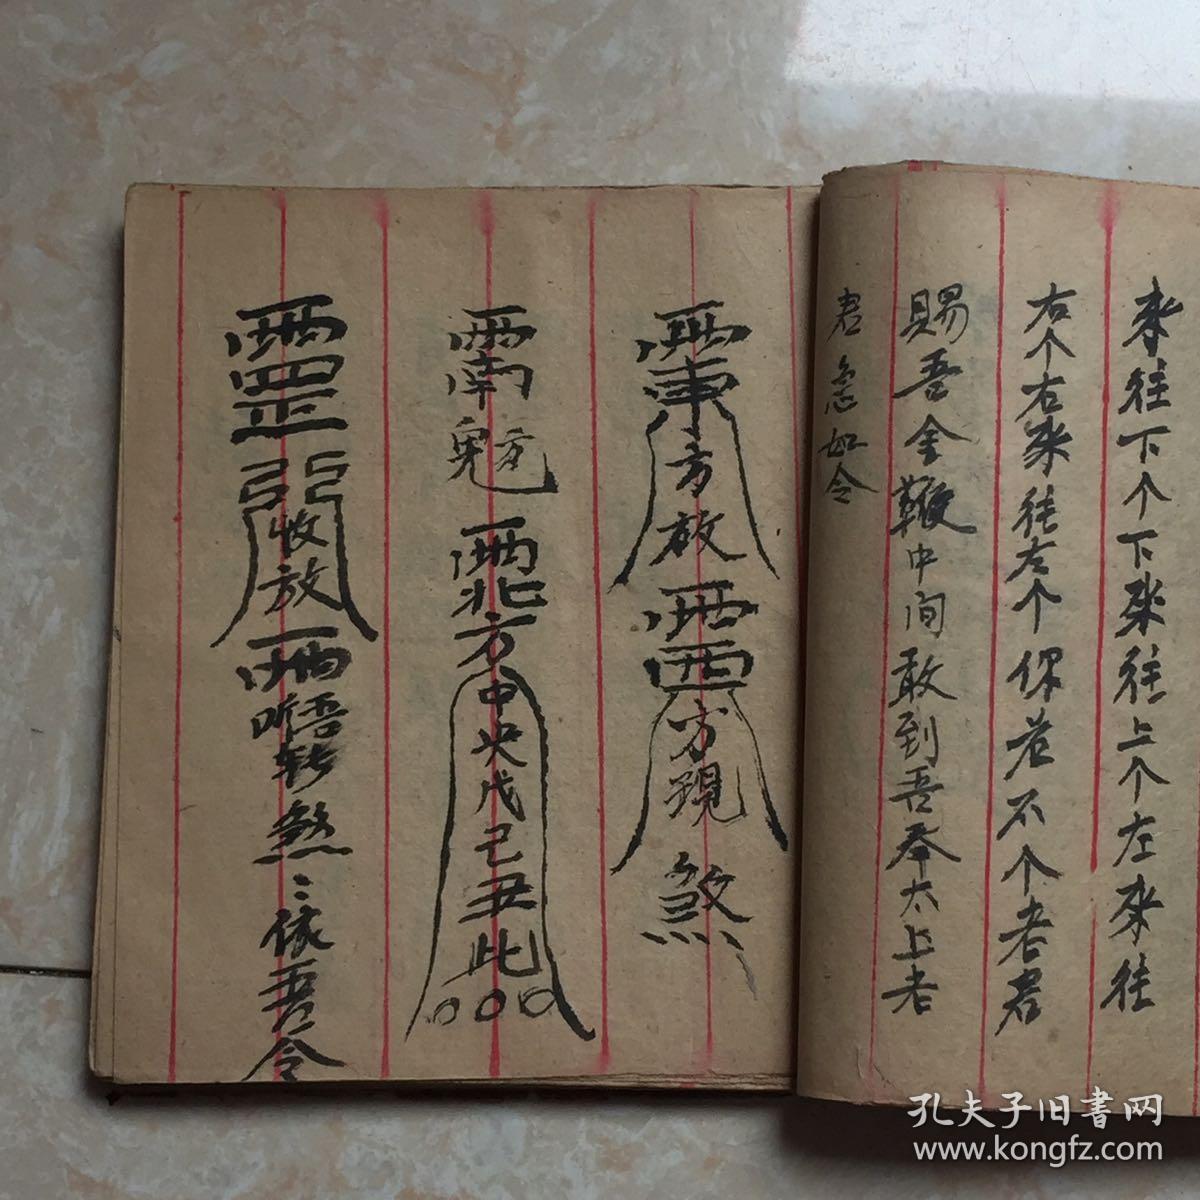 来往下个下来往上个左来往
右个右来往左个你若不个老君
賜吾金鞭中间敢到吾奉太上老
君急如令
東方放西方現煞
南方
北方中央戊己丑此
收放
唔转煞:依吾令
孔夫子旧書网
www.kongfz.com